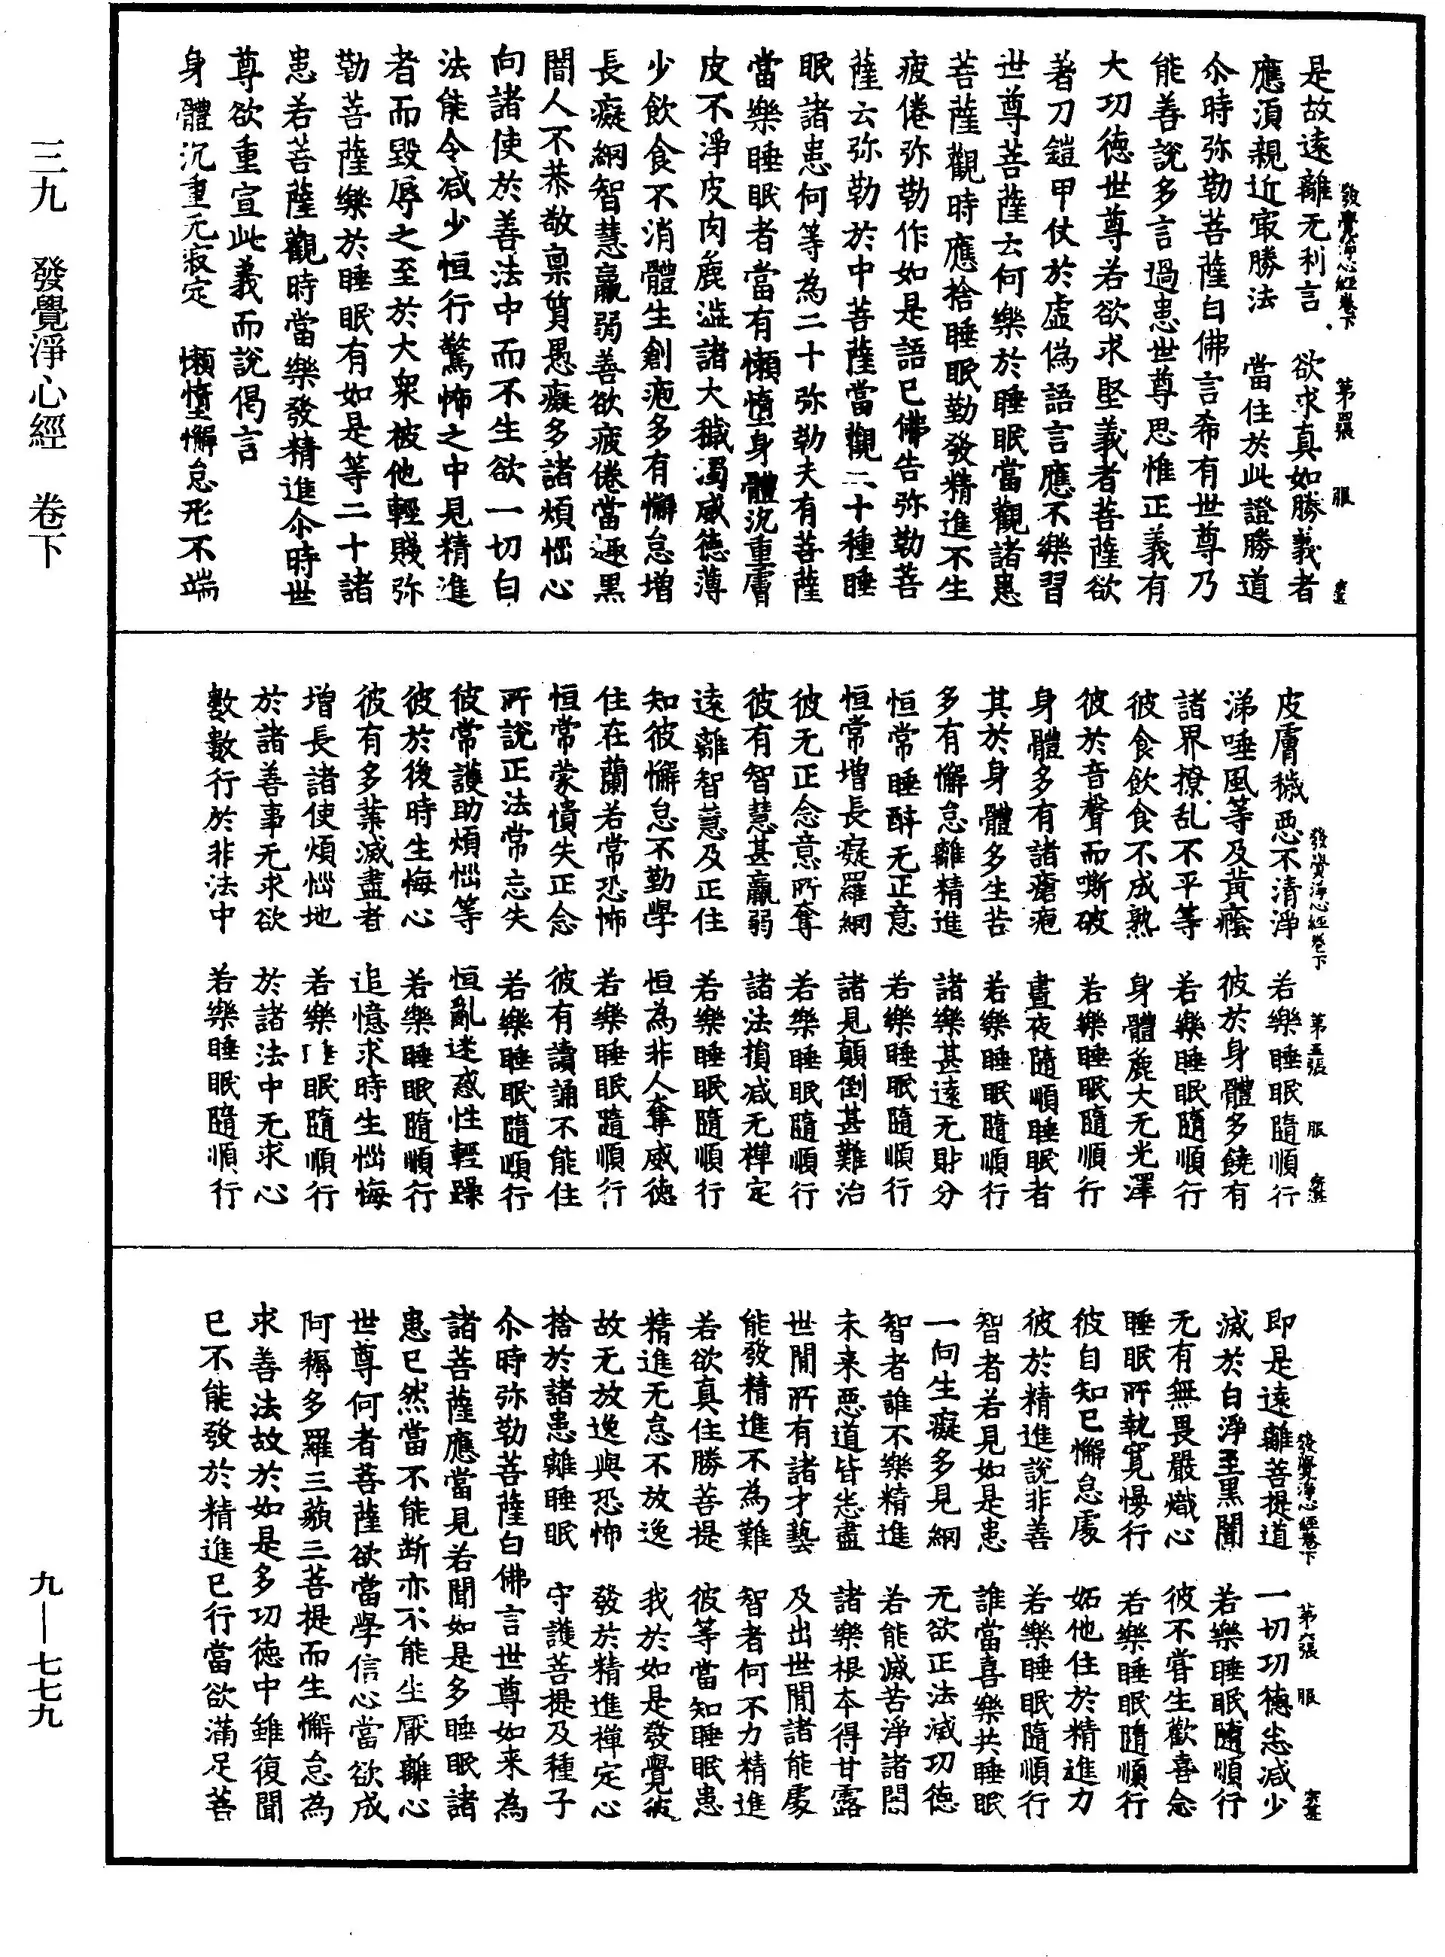 三九　發覺淨心經　卷下
九—七七九
是故遠離无利言　欲求真如勝義者
發覺淨心經卷下　第四張　服
應須親近㝡勝法　當住於此證勝道
尒時弥勒菩薩白佛言希有世尊乃
能善說多言過患世尊思惟正義有
大功德世尊若欲求堅義者菩薩欲
著刀鎧甲仗於虛偽語言應不樂習
世尊菩薩云何樂於睡眠當觀諸患
菩薩觀時應捨睡眠勤發精進不生
疲倦弥勒作如是語已佛告弥勒菩
薩云弥勒於中菩薩當觀二十種睡
眠諸患何等為二十弥勒夫有菩薩
當樂睡眠者當有懶惰身體沉重膚
皮不淨皮肉麁澁諸大穢濁威德薄
少飲食不消體生創疱多有懈怠增
長癡網智慧羸弱善欲疲倦當趣黒
闇人不恭敬稟質愚癡多諸煩惱心
向諸使於善法中而不生欲一切白
法能令减少恒行驚怖之中見精進
者而毀辱之至於大衆被他輕賤弥
勒菩薩樂於睡眠有如是等二十諸
患若菩薩觀時當樂發精進尒時世
尊欲重宣此義而說偈言
身體沉重无寂定　懶惰懈怠形不端
皮膚穢惡不清淨　若樂睡眠隨順行
發覺淨心經卷下　第五張　服
涕唾風等及黃癊　彼於身體多饒有
諸界撩乱不平等　若樂睡眠隨順行
彼食飲食不成熟　身體麁大无光澤
彼於音聲而嘶破　若樂睡眠隨順行
身體多有諸瘡疱　晝夜隨順睡眠者
其於身體多生苦　若樂睡眠隨順行
多有懈怠離精進　諸樂甚遠无財分
恒常睡醉无正意　若樂睡眠隨順行
恒常增長癡羅網　諸見顛倒甚難治
彼无正念意所奪　若樂睡眠隨順行
彼有智慧甚羸弱　諸法損减无禪定
遠離智慧及正住　若樂睡眠隨順行
知彼懈怠不勤學　恒為非人奪威德
住在蘭若常恐怖　若樂睡眠隨順行
恒常蒙憒失正念　彼有讀誦不能住
所說正法常忘失　若樂睡眠隨順行
彼常護助煩惱等　恒亂迷惑性輕躁
彼於後時生悔心　若樂睡眠隨順行
彼有多葉滅盡者　追憶求時生惱悔
增長諸使煩惱地　若樂睡眠隨順行
於諸善事无求欲　於諸法中无求心
數數行於非法中　若樂睡眠隨順行
即是遠離菩提道　一切功德悉减少
發覺淨心經卷下　第六張　服
滅於白淨至黒闇　若樂睡眠隨順行
无有無畏嚴熾心　彼不甞生歡喜念
睡眠所執寬慢行　若樂睡眠隨順行
彼自知已懈怠處　妬他住於精進力
彼於精進說非善　若樂睡眠隨順行
智者若見如是患　誰當喜樂共睡眠
一向生癡多見網　无欲正法滅功德
智者誰不樂精進　若能滅苦淨諸闇
未來惡道皆悉盡　諸樂根本得甘露
世間所有諸才藝　及出世間諸能處
能發精進不為難　智者何不力精進
若欲真住勝菩提　彼等當知睡眠患
精進无怠不放逸　我於如是發覺彼
故无放逸與恐怖　發於精進禪定心
捨於諸患離睡眠　守護菩提及種子
尒時弥勒菩薩白佛言世尊如来為
諸菩薩應當見若聞如是多睡眠諸
患已然當不能斷亦不能生厭離心
世尊何者菩薩欲當學信心當欲成
阿耨多羅三藐三菩提而生懈怠為
求善法故於如是多功德中雖復聞
已不能發於精進已行當欲滿足菩